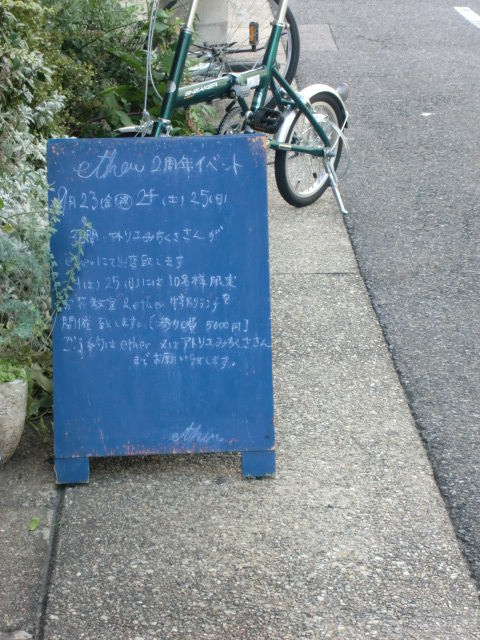 SNEAKER
ether 2周年イベント
9月23(金)(祝) 24(土) 25(日)
間、アトリエみちくささんが
etherにて出店致します
(土) 25(日)には 10名様限定
教室&ether 特別ランチを
開催 致します。[参加費 5000円]
ご予約は ether 又は アトリエみちくささん
までお願い致します。
ether